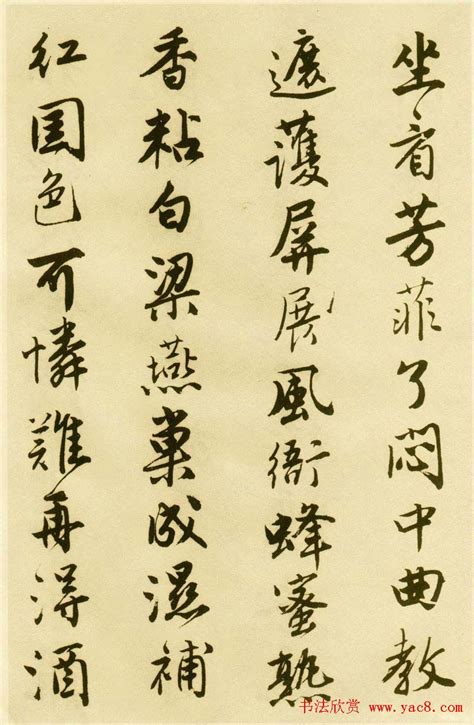 坐看芳菲了悶中曲教
遮護屏展風衙蜂蜜熟
香粘白梁燕巢成濕補
紅国色可憐難再得酒
书法欣赏 www.yac8.com